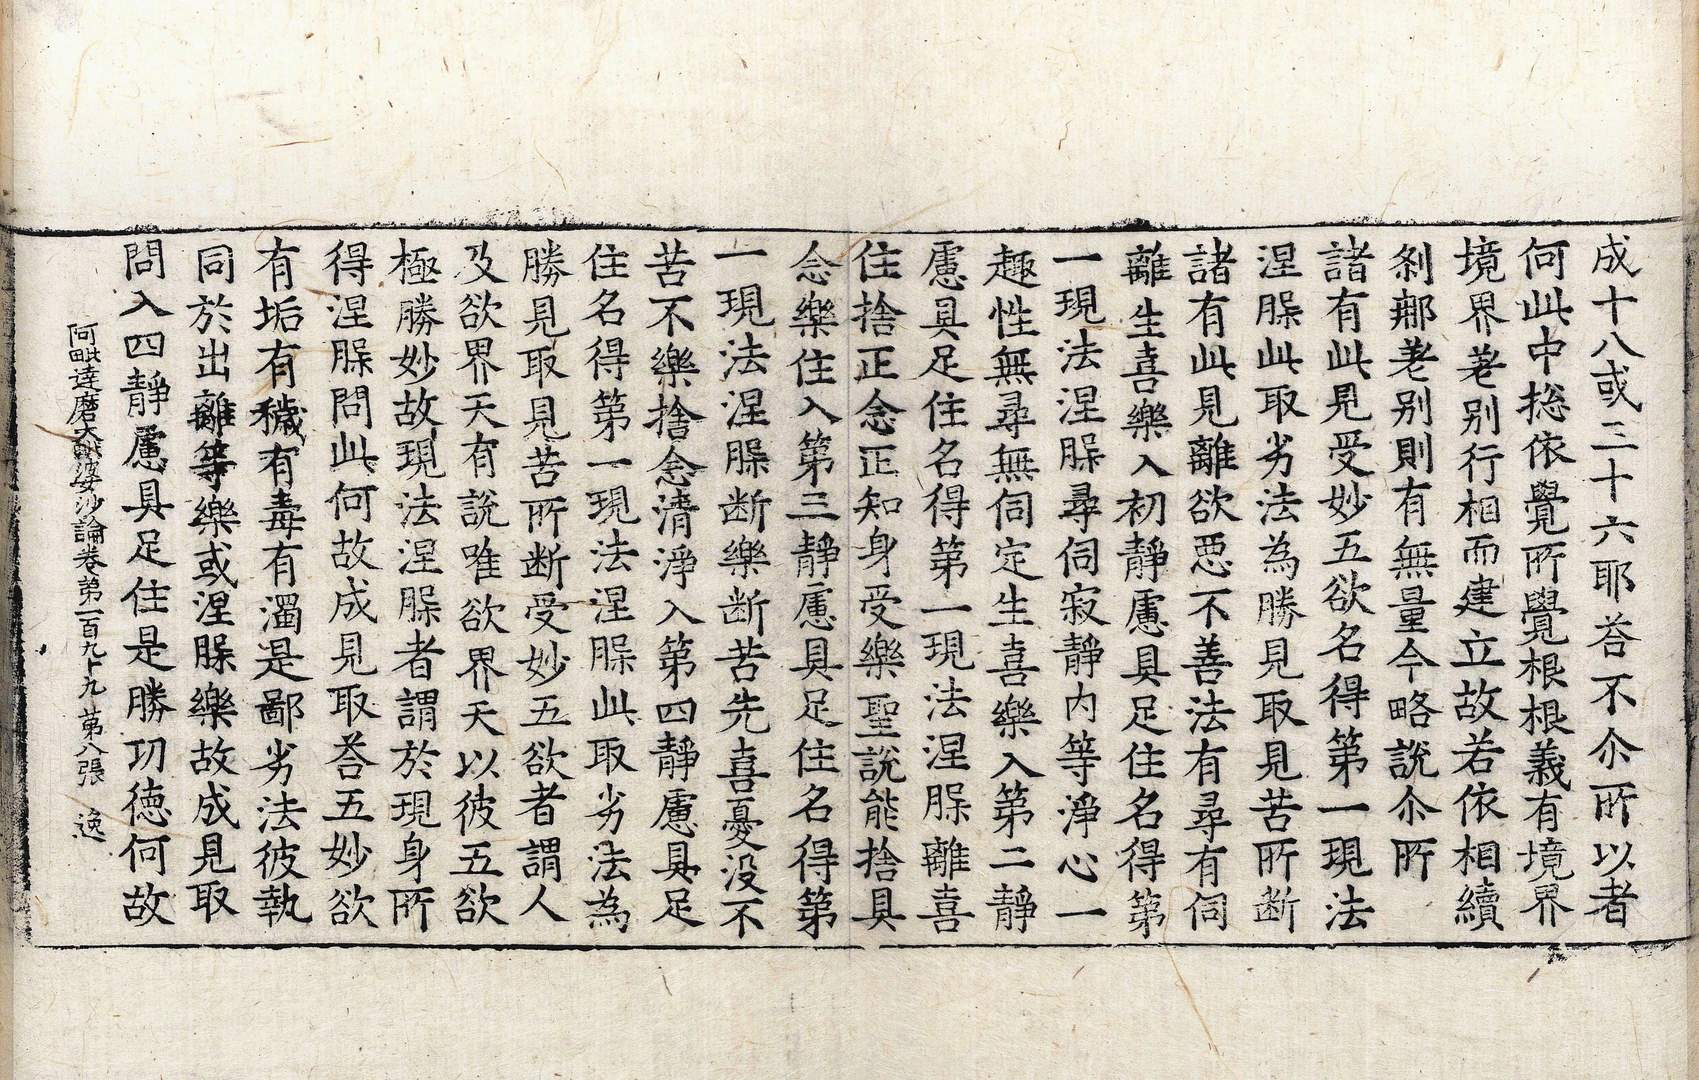 成十八或三十六耶荅不尒所以者
何此中揔依覺所覺根根義有境界
境界差別行相而建立故若依相續
刹那差別則有無量今略說尒所
諸有此見受妙五欲名得第一現法
涅槃此取劣法為勝見取見苦所断
諸有此見離欲惡不善法有尋有伺
離生喜樂入初靜慮具足住名得第
一現法涅槃尋伺寂靜內等淨心一
趣性無尋無伺定生喜樂入第二靜
慮具足住名得第一現法涅槃離喜
住捨正念正知身受樂聖說能捨具
念樂住入第三靜慮具足住名得第
一現法涅槃断樂断苦先喜憂没不
苦不樂捨念清淨入第四靜慮具足
住名得第一現法涅槃此取劣法為
勝見取見苦所断受妙五欲者謂人
及欲界天有說唯欲界天以彼五欲
極勝妙故現法涅槃者謂於現身所
得涅槃問此何故成見取荅五妙欲
有垢有穢有毒有濁是鄙劣法彼執
同於出離等樂或涅槃樂故成見取
問入四靜慮具足住是勝功德何故
阿毗達磨大毗婆沙論卷第一百九十九 第八張 逸